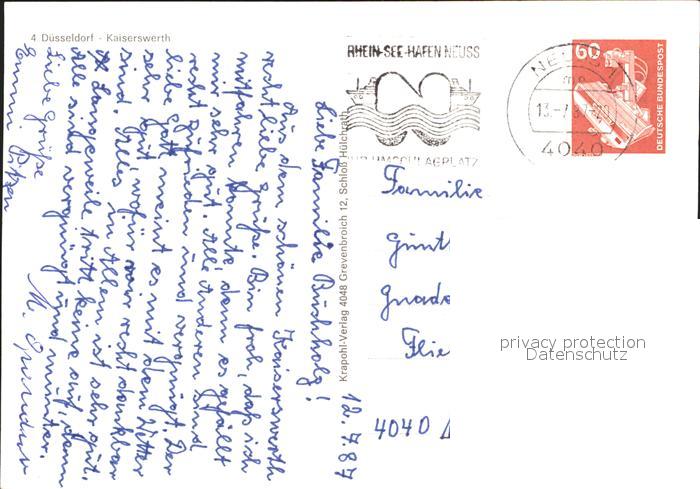 4 Düsseldorf - Kaiserswerth
12.7.87
Liebe Familie Buchholz!
Aus dem schönen Kaiserswerth
recht liebe Grüße. Bin froh, daß ich
mitfahren konnte denn es gefällt
mir sehr gut. Alle Anderen sind
recht zufrieden und vergnügt. Der
liebe Gott meint es mit dem Wetter
sehr gut, wofür wir recht dankbar
sind. Alles in Allem ist sehr gut.
Langeweile tritt keine auf, denn
Alle sind vergnügt und munter.
Liebe Grüße
M.
Krapohl-Verlag 4048 Grevenbroich 12, Schloß Hülchrath
RHEIN-SEE-HAFEN NEUSS
UMSCHLAGPLATZ
NEUSS 1
13.-7.87
4040
60
DEUTSCHE BUNDESPOST
Familie
Günt
Gnade
Flie
4040
privacy protection
Datenschutz